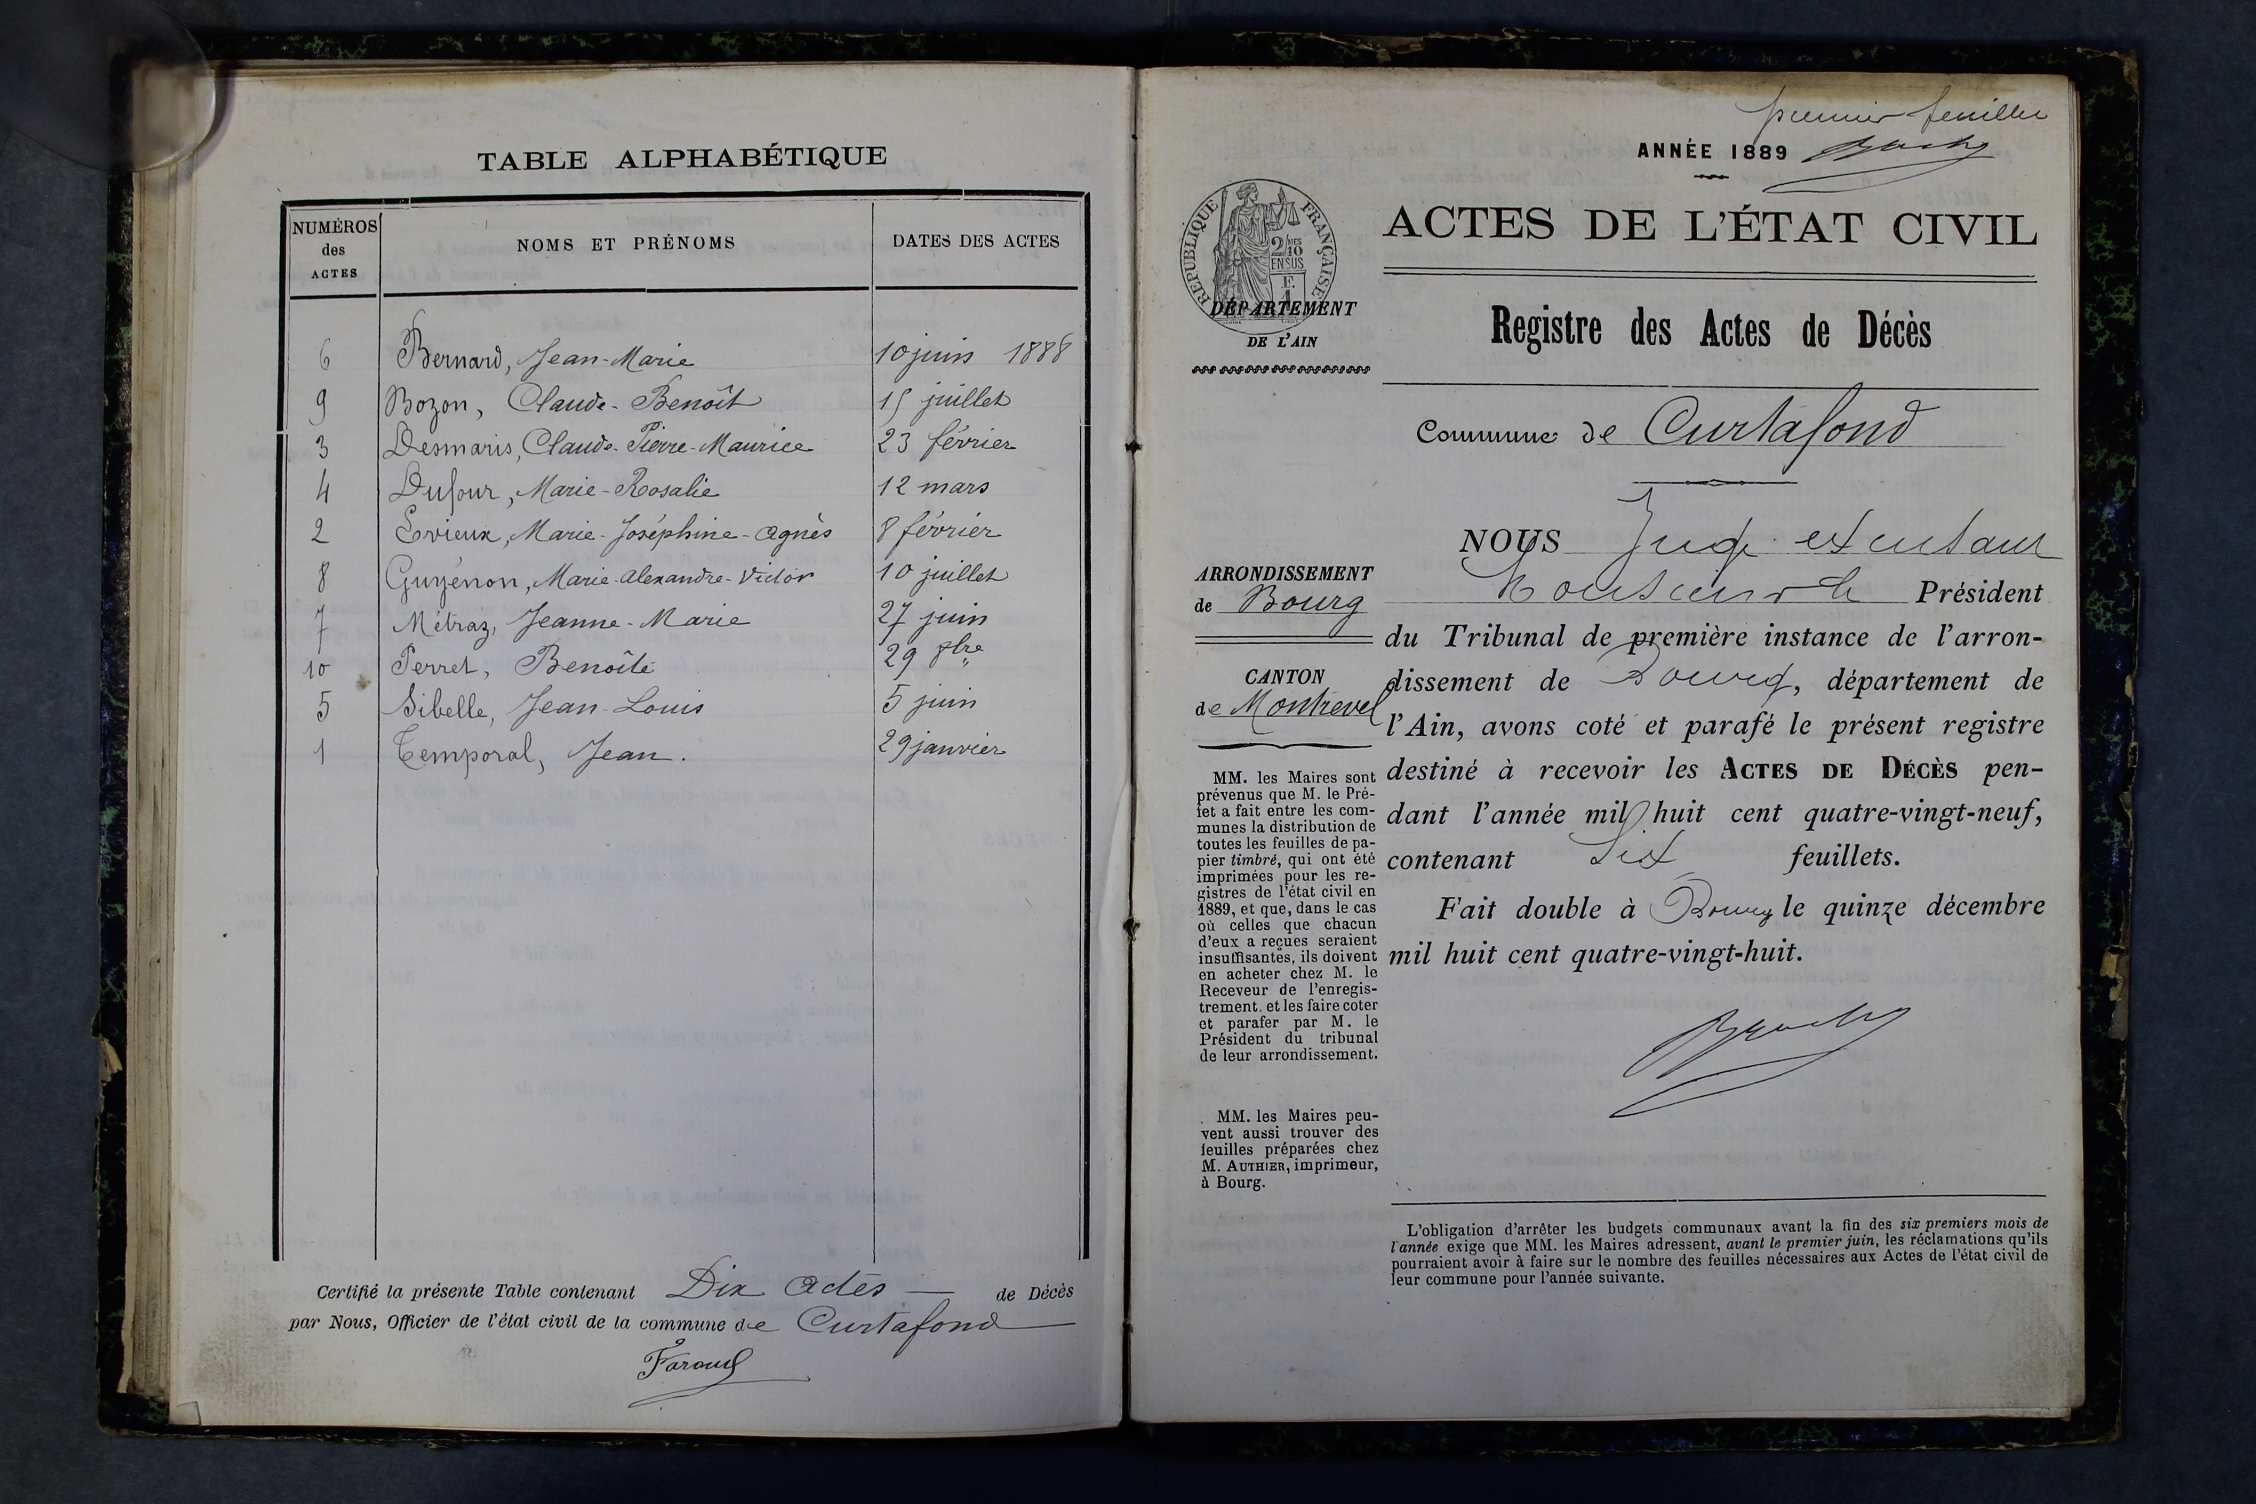 TABLE ALPHABÉTIQUE
NUMÉROS
des
ACTES
NOMS ET PRÉNOMS
DATES DES ACTES
6 Bernard, Jean-Marie 10 juin 1888
9 Bozon, Claude-Benoît 15 juillet
3 Desmaris, Claude-Pierre-Maurice 23 février
4 Dufour, Marie-Rosalie 12 mars
2 Evieux, Marie-Joséphine-Agnès 8 février
8 Guyénon, Marie-Alexandre-Victor 10 juillet
7 Métraz, Jeanne-Marie 27 juin
10 Perret, Benoîte 29 8bre
5 Sibelle, Jean-Louis 5 juin
1 Temporal, Jean. 29 janvier
Certifié la présente Table contenant Dix Actes — de Décès
par Nous, Officier de l'état civil de la commune de Curtafond
premier feuillet
ANNÉE 1889
RÉPUBLIQUE FRANÇAISE
2/10
EN SUS
ACTES DE L'ÉTAT CIVIL
DÉPARTEMENT
DE L'AIN
Registre des Actes de Décès
Commune de Curtafond
ARRONDISSEMENT
de Bourg
CANTON
de Montrevel
MM. les Maires sont
prévenus que M. le Pré-
fet a fait entre les com-
munes la distribution de
toutes les feuilles de pa-
pier timbré, qui ont été
imprimées pour les re-
gistres de l'état civil en
1889, et que, dans le cas
où celles que chacun
d'eux a reçues seraient
insuffisantes, ils doivent
en acheter chez M. le
Receveur de l'enregis-
trement. et les faire coter
et parafer par M. le
Président du tribunal
de leur arrondissement.
MM. les Maires peu-
vent aussi trouver des
feuilles préparées chez
M. AUTHIER, imprimeur,
à Bourg.
NOUS Juge
Monsieur le Président
du Tribunal de première instance de l'arron-
dissement de Bourg, département de
l'Ain, avons coté et parafé le présent registre
destiné à recevoir les ACTES DE DÉCÈS pen-
dant l'année mil huit cent quatre-vingt-neuf,
contenant Six feuillets.
Fait double à Bourg le quinze décembre
mil huit cent quatre-vingt-huit.
L'obligation d'arrêter les budgets communaux avant la fin des six premiers mois de
l'année exige que MM. les Maires adressent, avant le premier juin, les réclamations qu'ils
pourraient avoir à faire sur le nombre des feuilles nécessaires aux Actes de l'état civil de
leur commune pour l'année suivante.